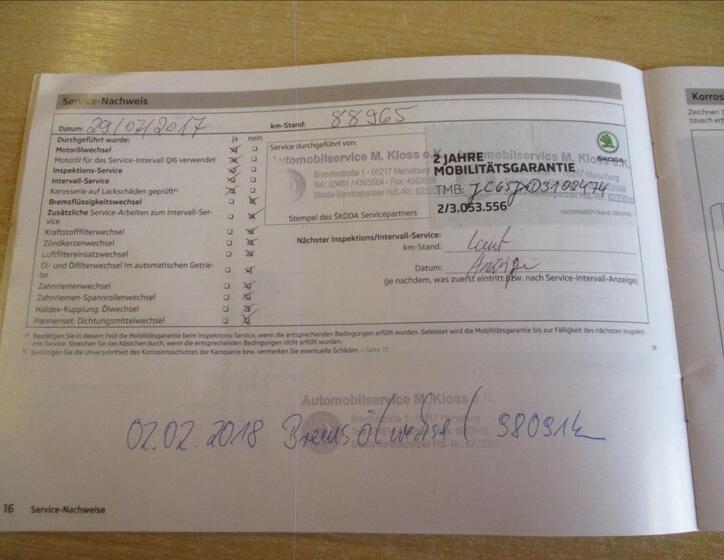 Service-Nachweis
Korros
Zeichnen S
tausch erf
Datum: 29/07/2017 km-Stand: 88965
Durchgeführt wurde: ja nein
Motorölwechsel
Motoröl für das Service-Intervall QI6 verwendet
Inspektions-Service
Intervall-Service
Karosserie auf Lackschäden geprüft
Bremsflüssigkeitswechsel
Zusätzliche Service-Arbeiten zum Intervall-Ser-
vice
Kraftstofffilterwechsel
Zündkerzenwechsel
Luftfiltereinsatzwechsel
Öl- und Ölfilterwechsel im automatischen Getrie-
be
Zahnriemenwechsel
Zahnriemen-Spannrollenwechsel
Haldex-Kupplung: Ölwechsel
Pannenset: Dichtungsmittelwechsel
Service durchgeführt von:
Automobilservice M. Kloss e.K.
Brandisstraße 1 · 06217 Merseburg
Stempel des ŠKODA Servicepartners
2 JAHRE
MOBILITÄTSGARANTIE
ŠKODA
TMB:
2/3.053.556
Nächster Inspektions/Intervall-Service:
km-Stand: laut
Datum: Anzeige
(je nachdem, was zuerst eintritt bzw. nach Service-Intervall-Anzeige)
Bestätigen Sie in diesem Feld die Mobilitätsgarantie beim Inspektions-Service, wenn die entsprechenden Bedingungen erfüllt wurden. Geleistet wird die Mobilitätsgarantie bis zur Fälligkeit des nächsten Inspekti-
ons-Service. Streichen Sie das Kästchen durch, wenn die entsprechenden Bedingungen nicht erfüllt wurden.
Bestätigen Sie die Unversehrtheit des Korrosionsschutzes der Karosserie bzw. vermerken Sie eventuelle Schäden » Seite 17.
Automobilservice M. Kloss e.K.
02.02.2018 Bremsölwechsel 98091km
16 Service-Nachweise